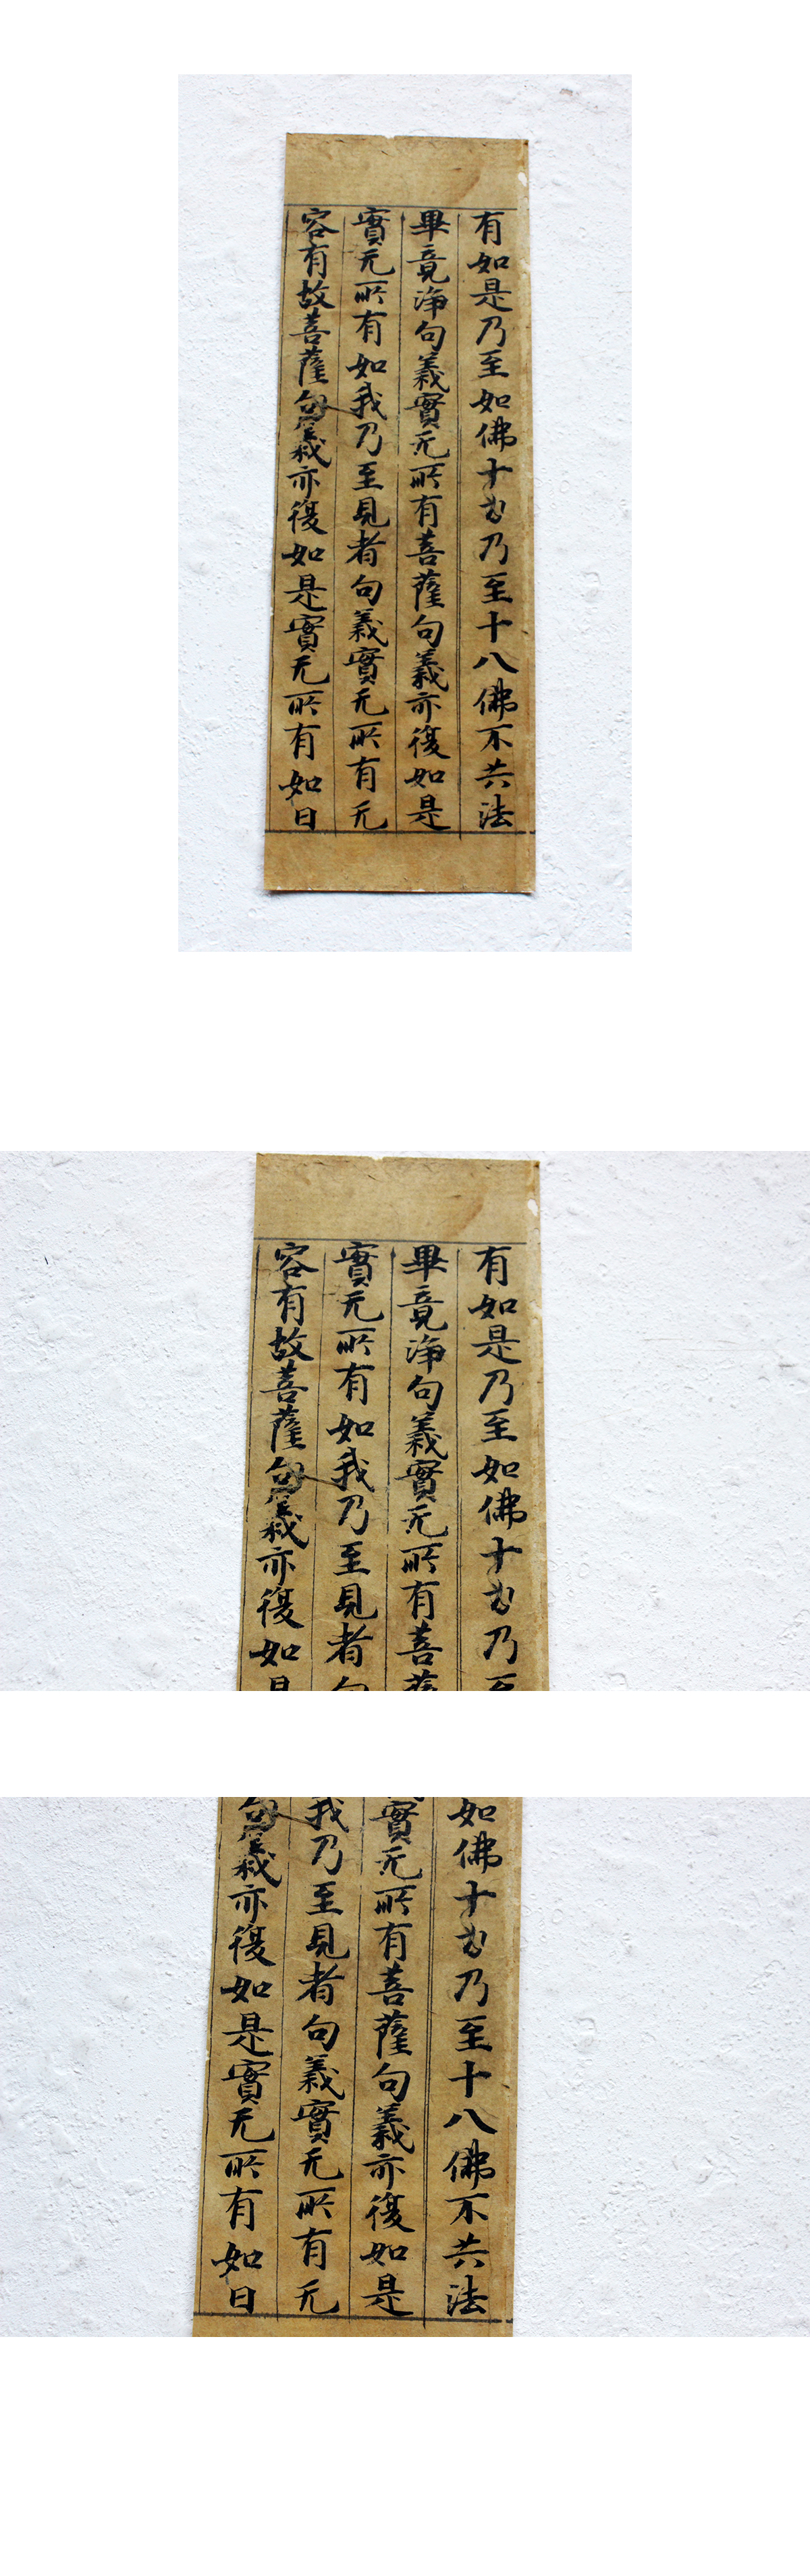 有如是乃至如佛十力乃至十八佛不共法
畢竟浄句義實无所有菩薩句義亦復如是
實无所有如我乃至見者句義實无所有无
容有故菩薩句義亦復如是實无所有如日
有如是乃至如佛十力乃
畢竟浄句義實无所有菩
實无所有如我乃至見者
容有故菩薩句義亦復如
如佛十力乃至十八佛不共法
實无所有菩薩句義亦復如是
我乃至見者句義實无所有无
句義亦復如是實无所有如日